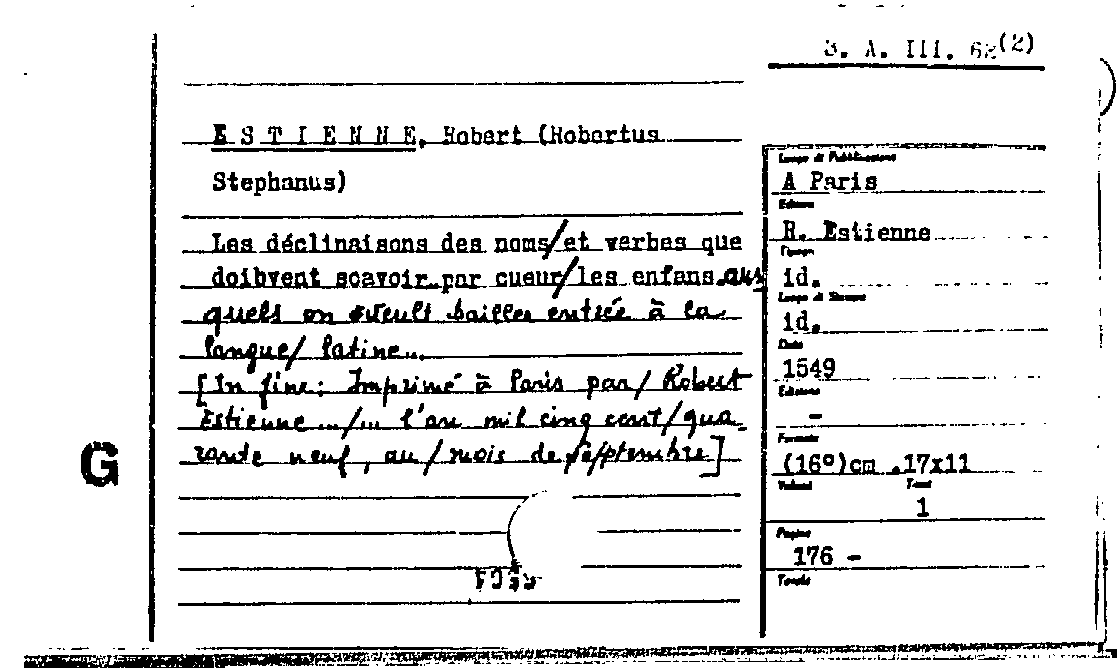 S. A. III. 62(2)
E S T I E N N E, Robert (Robertus
Stephanus)
Les déclinaisons des noms/et verbes que
doibvent scavoir par cueur/les enfans aus
quels on veult bailler entrée à la
langue/ latine...
[In fine: Imprimé à Paris par/ Robert
Estienne .../... l'an mil cinq cent/qua_
rante neuf, au/mois de septembre]
G
Luogo di Pubblicazione
A Paris
Editore
R. Estienne
Tipogr.
id.
Luogo di Stampa
id.
Data
1549
Edizione
-
Formato
(16º)cm .17x11
Volumi Tomi
1
Pagine
176 -
Tavole